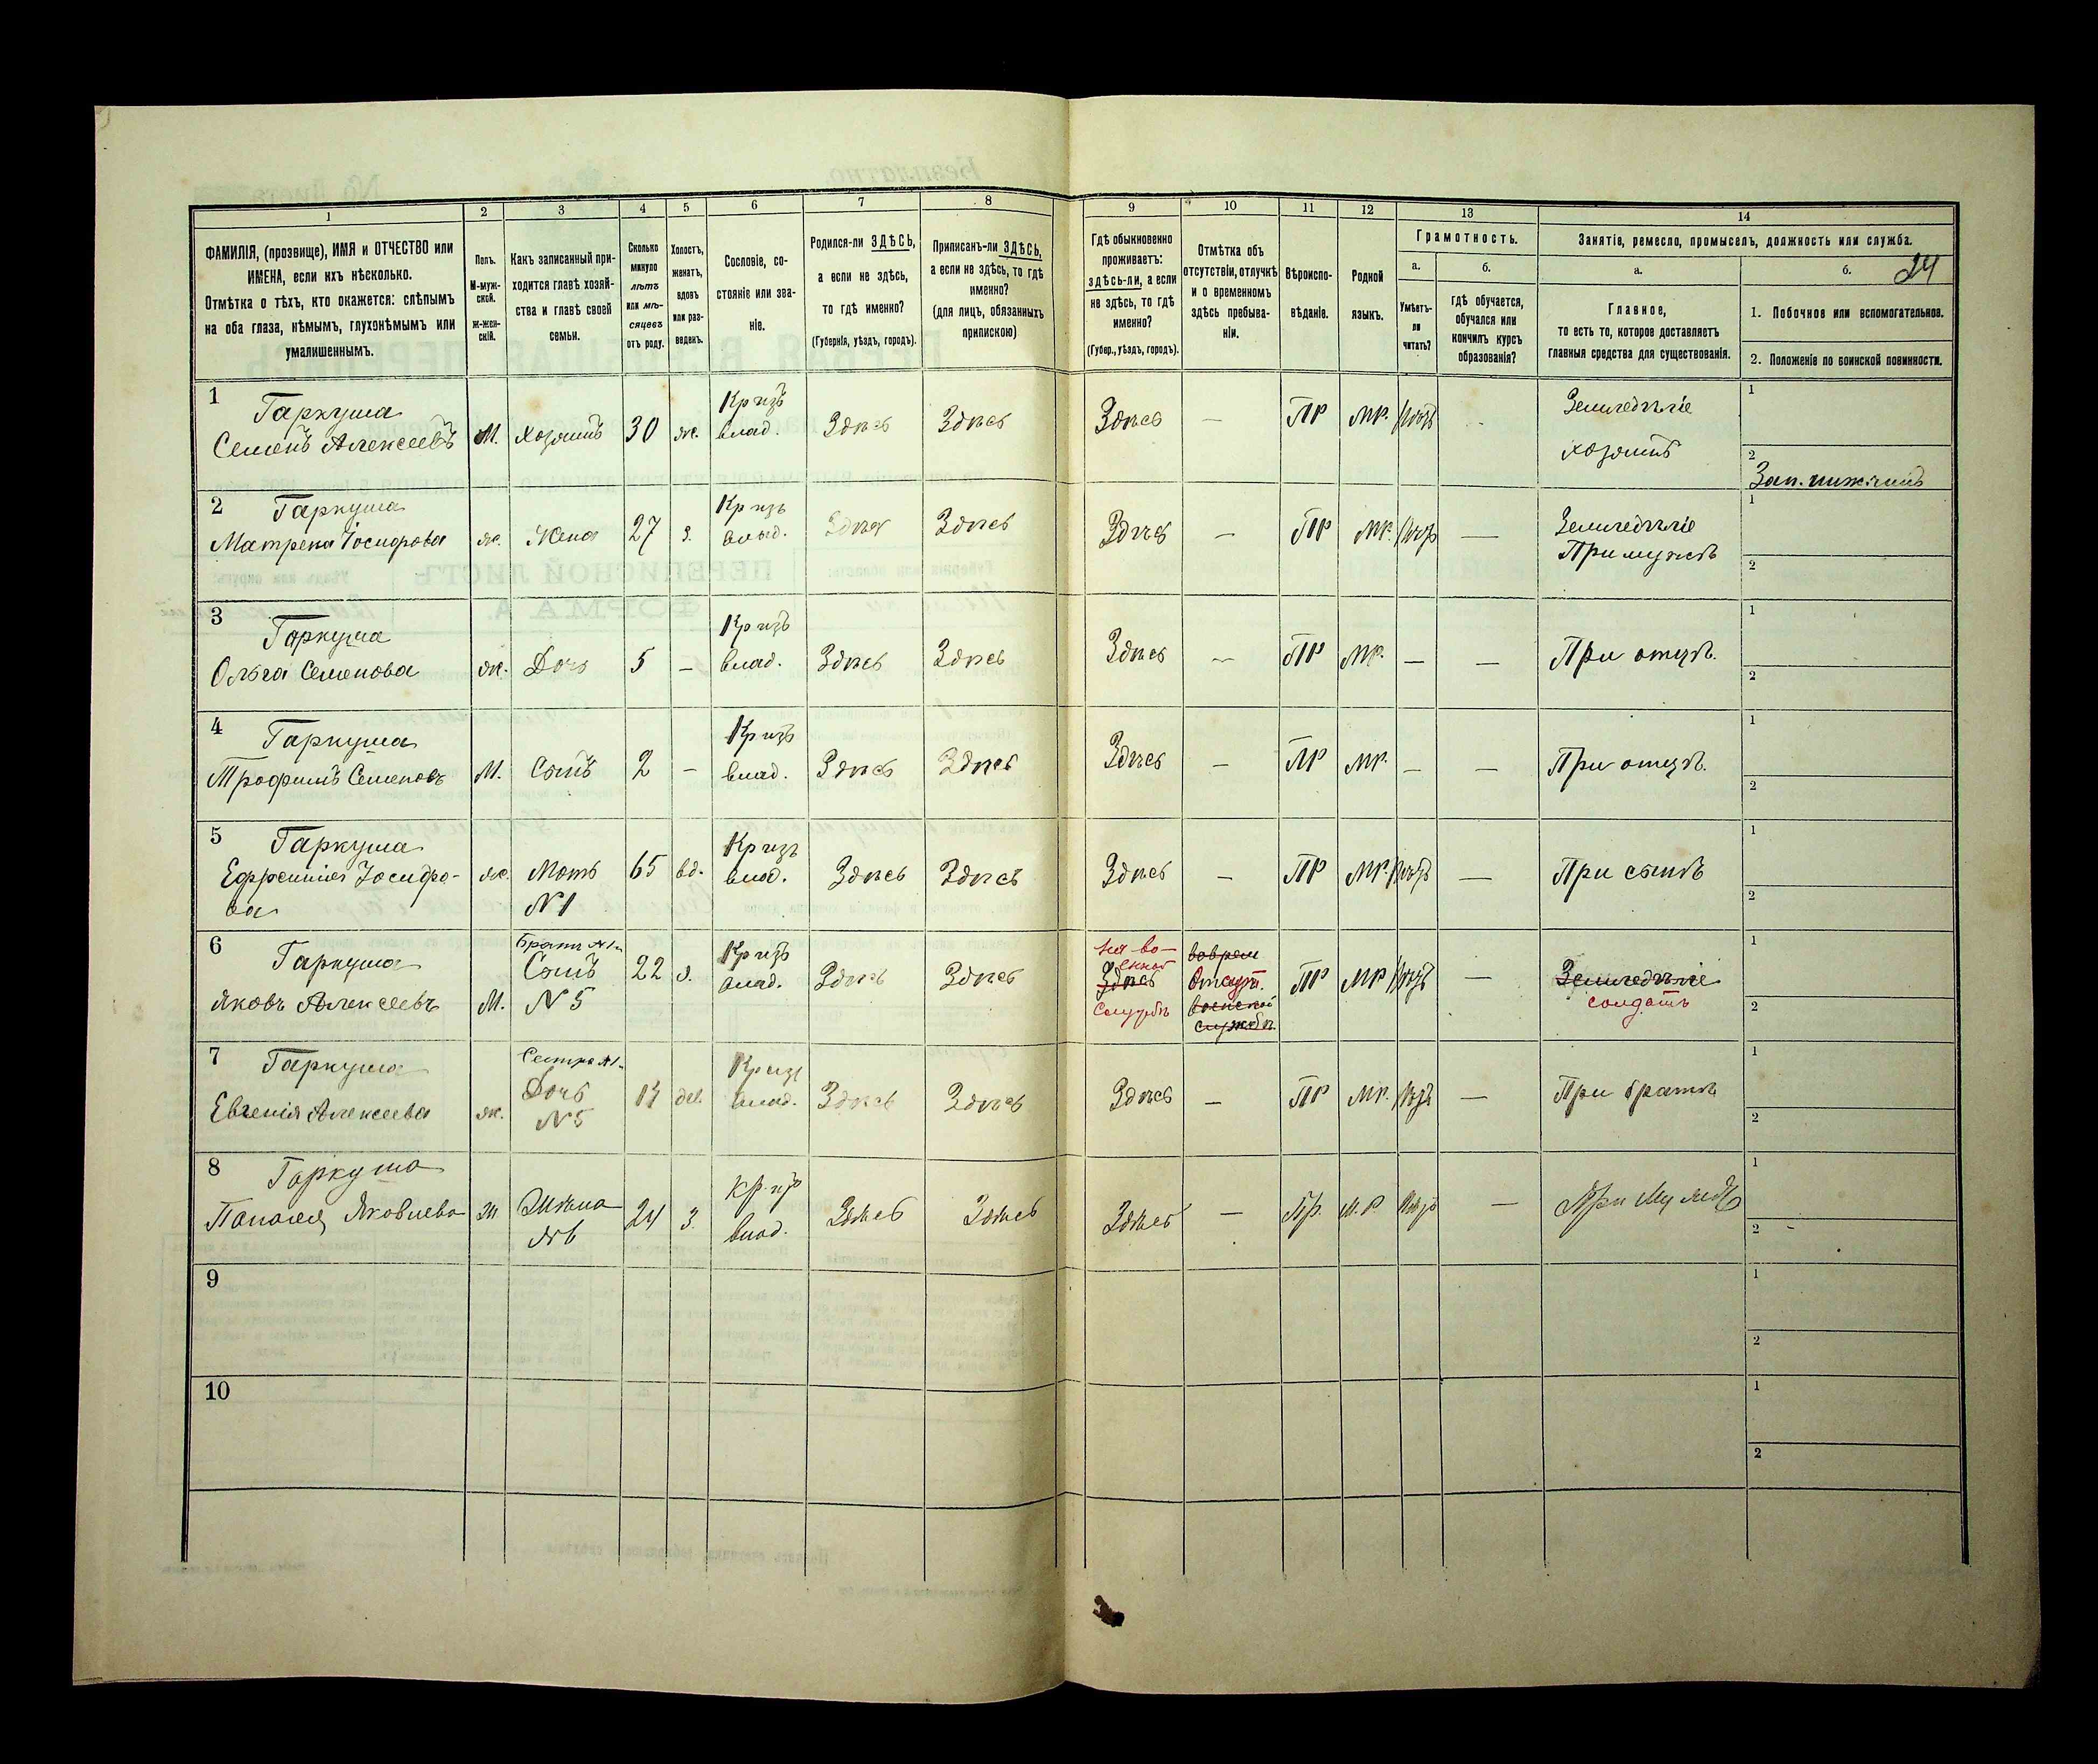 1 2 3 4 5 6 7 8 9 10 11 12 13 14
ФАМИЛІЯ, (прозвище), ИМЯ и ОТЧЕСТВО или
ИМЕНА, если ихъ нѣсколько.
Отмѣтка о тѣхъ, кто окажется: слѣпымъ
на оба глаза, нѣмымъ, глухонѣмымъ или
умалишеннымъ.
Полъ.
М-муж-
ской.
Ж-жен-
скій.
Какъ записанный при-
ходится главѣ хозяй-
ства и главѣ своей
семьи.
Сколько
минуло
лѣтъ
или мѣ-
сяцевъ
отъ роду.
Холостъ,
женатъ,
вдовъ
или раз-
веденъ.
Сословіе, со-
стояніе или зва-
ніе.
Родился-ли ЗДѢСЬ,
а если не здѣсь,
то гдѣ именно?
(Губернія, уѣздъ, городъ).
Приписанъ-ли ЗДѢСЬ,
а если не здѣсь, то гдѣ
именно?
(для лицъ, обязанныхъ
припискою)
Гдѣ обыкновенно
проживаетъ:
здѣсь-ли, а если
не здѣсь, то гдѣ
именно?
(Губер., уѣздъ, городъ).
Отмѣтка объ
отсутствіи, отлучкѣ
и о временномъ
здѣсь пребыва-
ніи.
Вѣроиспо-
вѣданіе.
Родной
языкъ.
Грамотность.
а.
Умѣетъ-
ли
читать?
б.
гдѣ обучается,
обучался или
кончилъ курсъ
образованія?
Занятіе, ремесло, промыселъ, должность или служба.
а.
Главное,
то есть то, которое доставляетъ
главныя средства для существованія.
б.
24
1. Побочное или вспомогательное.
2. Положеніе по воинской повинности.
1
Гаркуша
Семенъ Алексеевъ М. Хозяинъ 30 ж.
влад. Здѣсь Здѣсь Здѣсь — ПР МР.
Земледѣліе
хозяинъ
1
2
Зап. нижчинъ
2
Гаркуша
Матрена Іосифова ж. Жена 27 з.
влад. Здѣсь Здѣсь Здѣсь — ПР МР. —
Земледѣліе
При мужѣ
1
2
3
Гаркуша
Ольга Семенова ж. Дочь 5 —
влад. Здѣсь Здѣсь Здѣсь — ПР МР. — — При отцѣ.
1
2
4
Гаркуша
Трофимъ Семеновъ М. Сынъ 2 —
влад. Здѣсь Здѣсь Здѣсь — ПР МР. — — При отцѣ.
1
2
5
Гаркуша
ж. Мать 65 вд.
№ 1
влад. Здѣсь Здѣсь Здѣсь — ПР МР. — При сынѣ
1
2
6
Гаркуша
Яковъ Алексеевъ М.
Братъ №1
Сынъ
№ 5
22
влад. Здѣсь Здѣсь
на во-
енной
Здѣсь
службѣ
Отсут.
военской
службѣ
ПР МР —
Земледѣліе
солдатъ
1
2
7
Гаркуша
Евгенія Алексеева ж.
Сестра №1
Дочь
№ 5
дев.
влад. Здѣсь Здѣсь Здѣсь — ПР МР. — При братѣ
1
2
8
Гаркуша
Яковлева
24 З.
влад. Здѣсь Здѣсь Здѣсь — Пр. М.Р. —
1
2
9
1
2
10
1
2